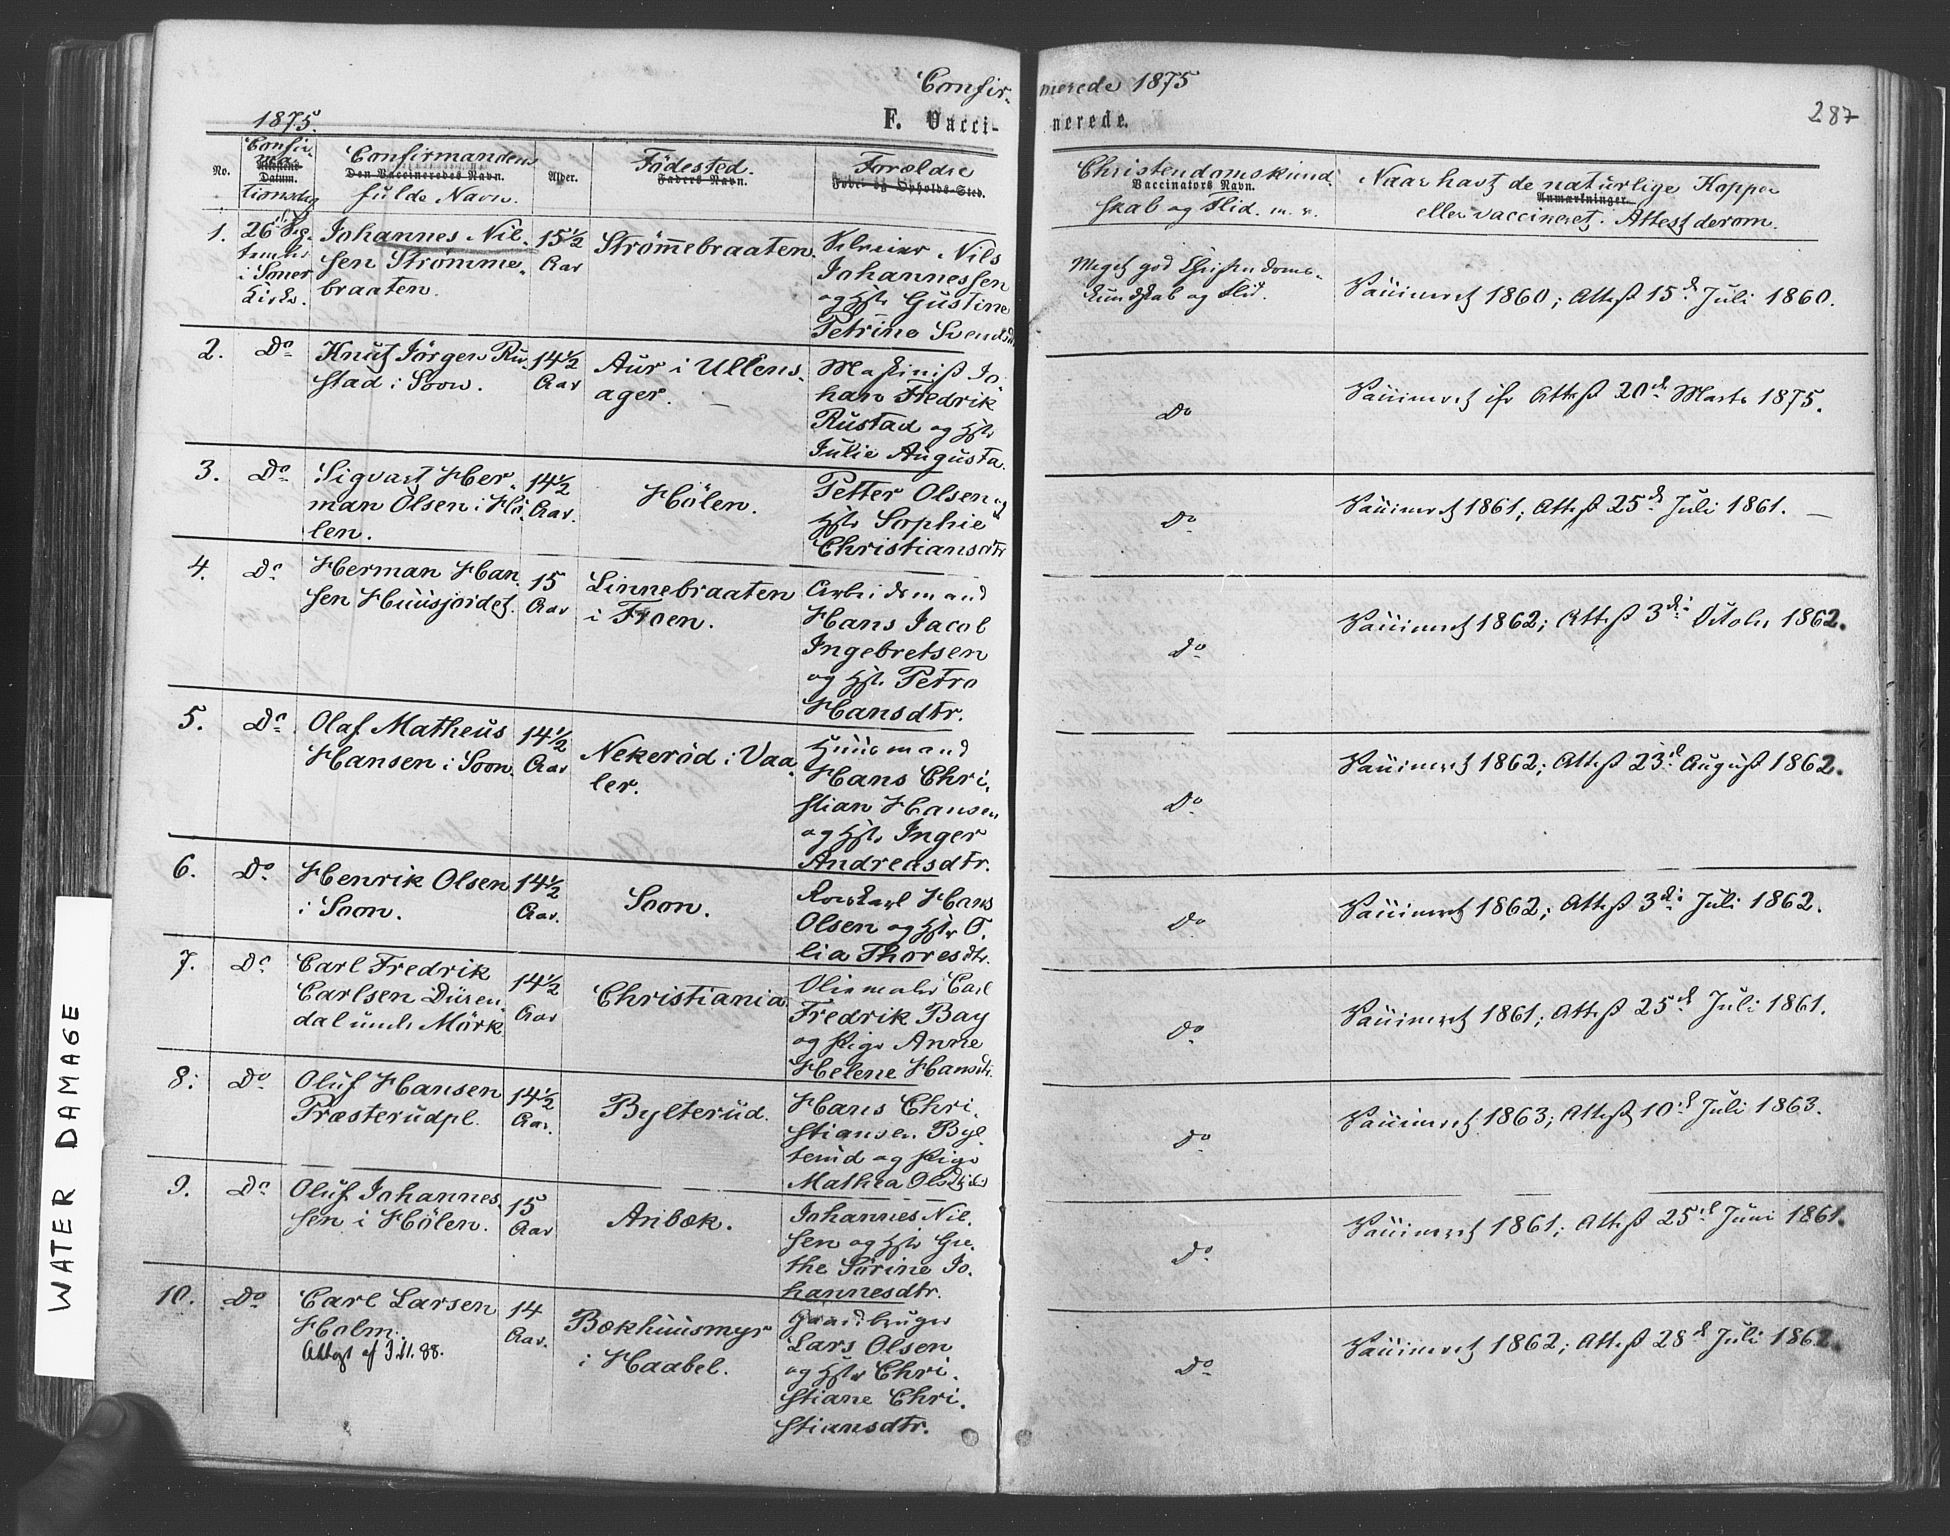 Confir-
merede 1875
287
1875.
F. Vacci-
nerede.
No.
Confir-
ma-
Datum.
tionsdag
Confirmandens
Den Vaccineredes Navn.
fulde Navn.
Alder.
Födested.
Faders Navn.
Forældre
Føde- og Opholds-Sted.
Christendomskund-
Vaccinators Navn.
skab og Flid. m. v.
Naar havt de naturlige Kopper
Anmærkninger.
eller vaccineret. Attest derom.
1.
26 Sep-
tember
i Soner
Kirke.
Johannes Nil-
sen Strömme-
braaten.
15½
Aar
Strömmebraaten.
Selveier Nils
Johannessen
og Hstr Gustine
Petrine Svendsdtr
Meget god Christendoms-
kundskab og Flid.
Vaccineret 1860; Attest 15de Juli 1860.
2.
Do
Knut Jörgen Ru-
stad i Soon.
14½
Aar
Aur i Ullens-
ager. —
Maskinist Jo-
han Fredrik
Rustad og Hstr
Julie Augusta.
Do
Vaccineret if. Attest 20de Marts 1875.
3.
Do
Sigvart Her-
man Olsen i Hö-
len.
14½
Aar.
Hölen.
Petter Olsen og
Hstr Sophie
Christiansdtr
Do
Vaccineret 1861; Attest 25de Juli 1861. —
4.
Do
Herman Han-
sen Huusjordet.
15
Aar
Linnebraaten
i Froen.
Arbeidsmand
Hans Jacob
Ingebretsen
og Hstr Petra
Hansdtr.
Do
Vaccineret 1862; Attest 3die October 1862.
5.
Do
Olaf Matheus
Hansen i Soon.
14½
Aar
Nekeröd i Vaa-
ler.
Huusmand
Hans Chri-
stian Hansen
og Hstr Inger
Andreasdtr.
Do
Vaccineret 1862; Attest 23de August 1862.
6.
Do
Henrik Olsen
i Soon.
14½
Aar.
Soon.
Hans
Olsen og Hstr O-
lia Thoresdtr.
Do
Vaccineret 1862; Attest 3die Juli 1862.
7.
Do
Carl Fredrik
Carlsen Düren-
dal under Mörk.
14½
Aar
Christiania.
Carl
Fredrik Bay
og Pige Anne
Helene Hansdtr.
Do
Vaccineret 1861; Attest 25de Juli 1861.
8.
Do
Oluf Hansen
Præsterudpl.
14½
Aar.
Bylterud.
Hans Chri-
stiansen Byl-
terud og Pige
Mathea Olsdtr
Do
Vaccineret 1863; Attest 10de Juli 1863.
9.
Do
Oluf Johannes-
sen i Hölen.
15
Aar
Aribæk.
Johannes Nil-
sen og Hstr Gre-
the Sörine Jo-
hannesdtr.
Do
Vaccineret 1861; Attest 25de Juni 1861.
10.
Do
Carl Larsen
Holm.
Attest af 3.11.88.
14
Aar.
Bækhuusmyr
i Haabel.
Gaardbruger
Lars Olsen
og Hstr Chri-
stiane Chri-
stiansdtr.
Do
Vaccineret 1862; Attest 28de Juli 1862.
WATER DAMAGE